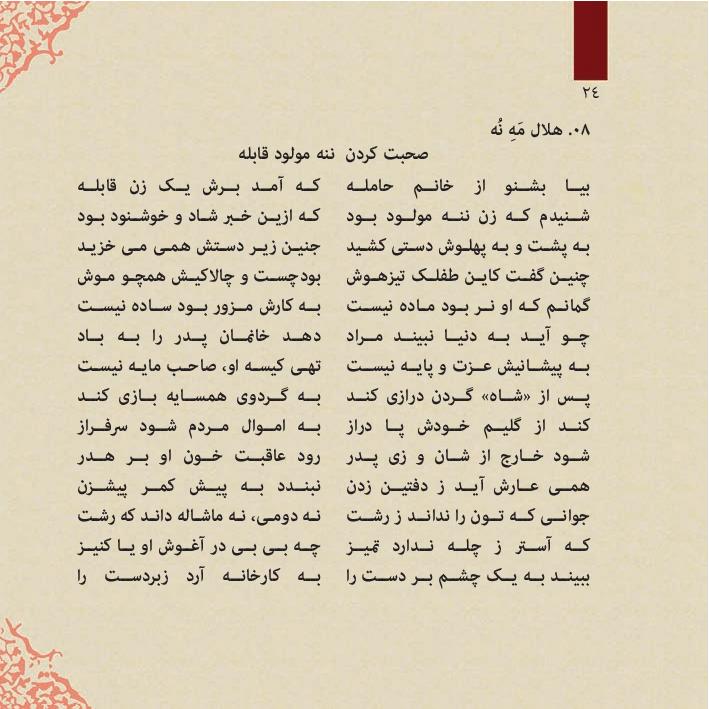 ٢٤
٠٨. هلال مَهِ نُه
صحبت کردن ننه مولود قابله
بیا بشنو از خانم حامله که آمد برش یک زن قابله
شنیدم که زن ننه مولود بود که ازین خبر شاد و خوشنود بود
به پشت و به پهلوش دستی کشید جنین زیر دستش همی می خزید
چنین گفت کاین طفلک تیزهوش بودچست و چالاکیش همچو موش
گمانم که او نر بود ماده نیست به کارش مزور بود ساده نیست
چو آید به دنیا نبیند مراد دهد خانمان پدر را به باد
به پیشانیش عزت و پایه نیست تهی کیسه او، صاحب مایه نیست
پس از «شاه» گردن درازی کند به گردوی همسایه بازی کند
کند از گلیم خودش پا دراز به اموال مردم شود سرفراز
شود خارج از شان و زی پدر رود عاقبت خون او بر هدر
همی عارش آید ز دفتین زدن نبندد به پیش کمر پیشزن
جوانی که تون را نداند ز رشت نه دومی، نه ماشاله داند که رشت
که آستر ز چله ندارد تمیز چه بی بی در آغوش او یا کنیز
ببیند به یک چشم بر دست را به کارخانه آرد زبردست را